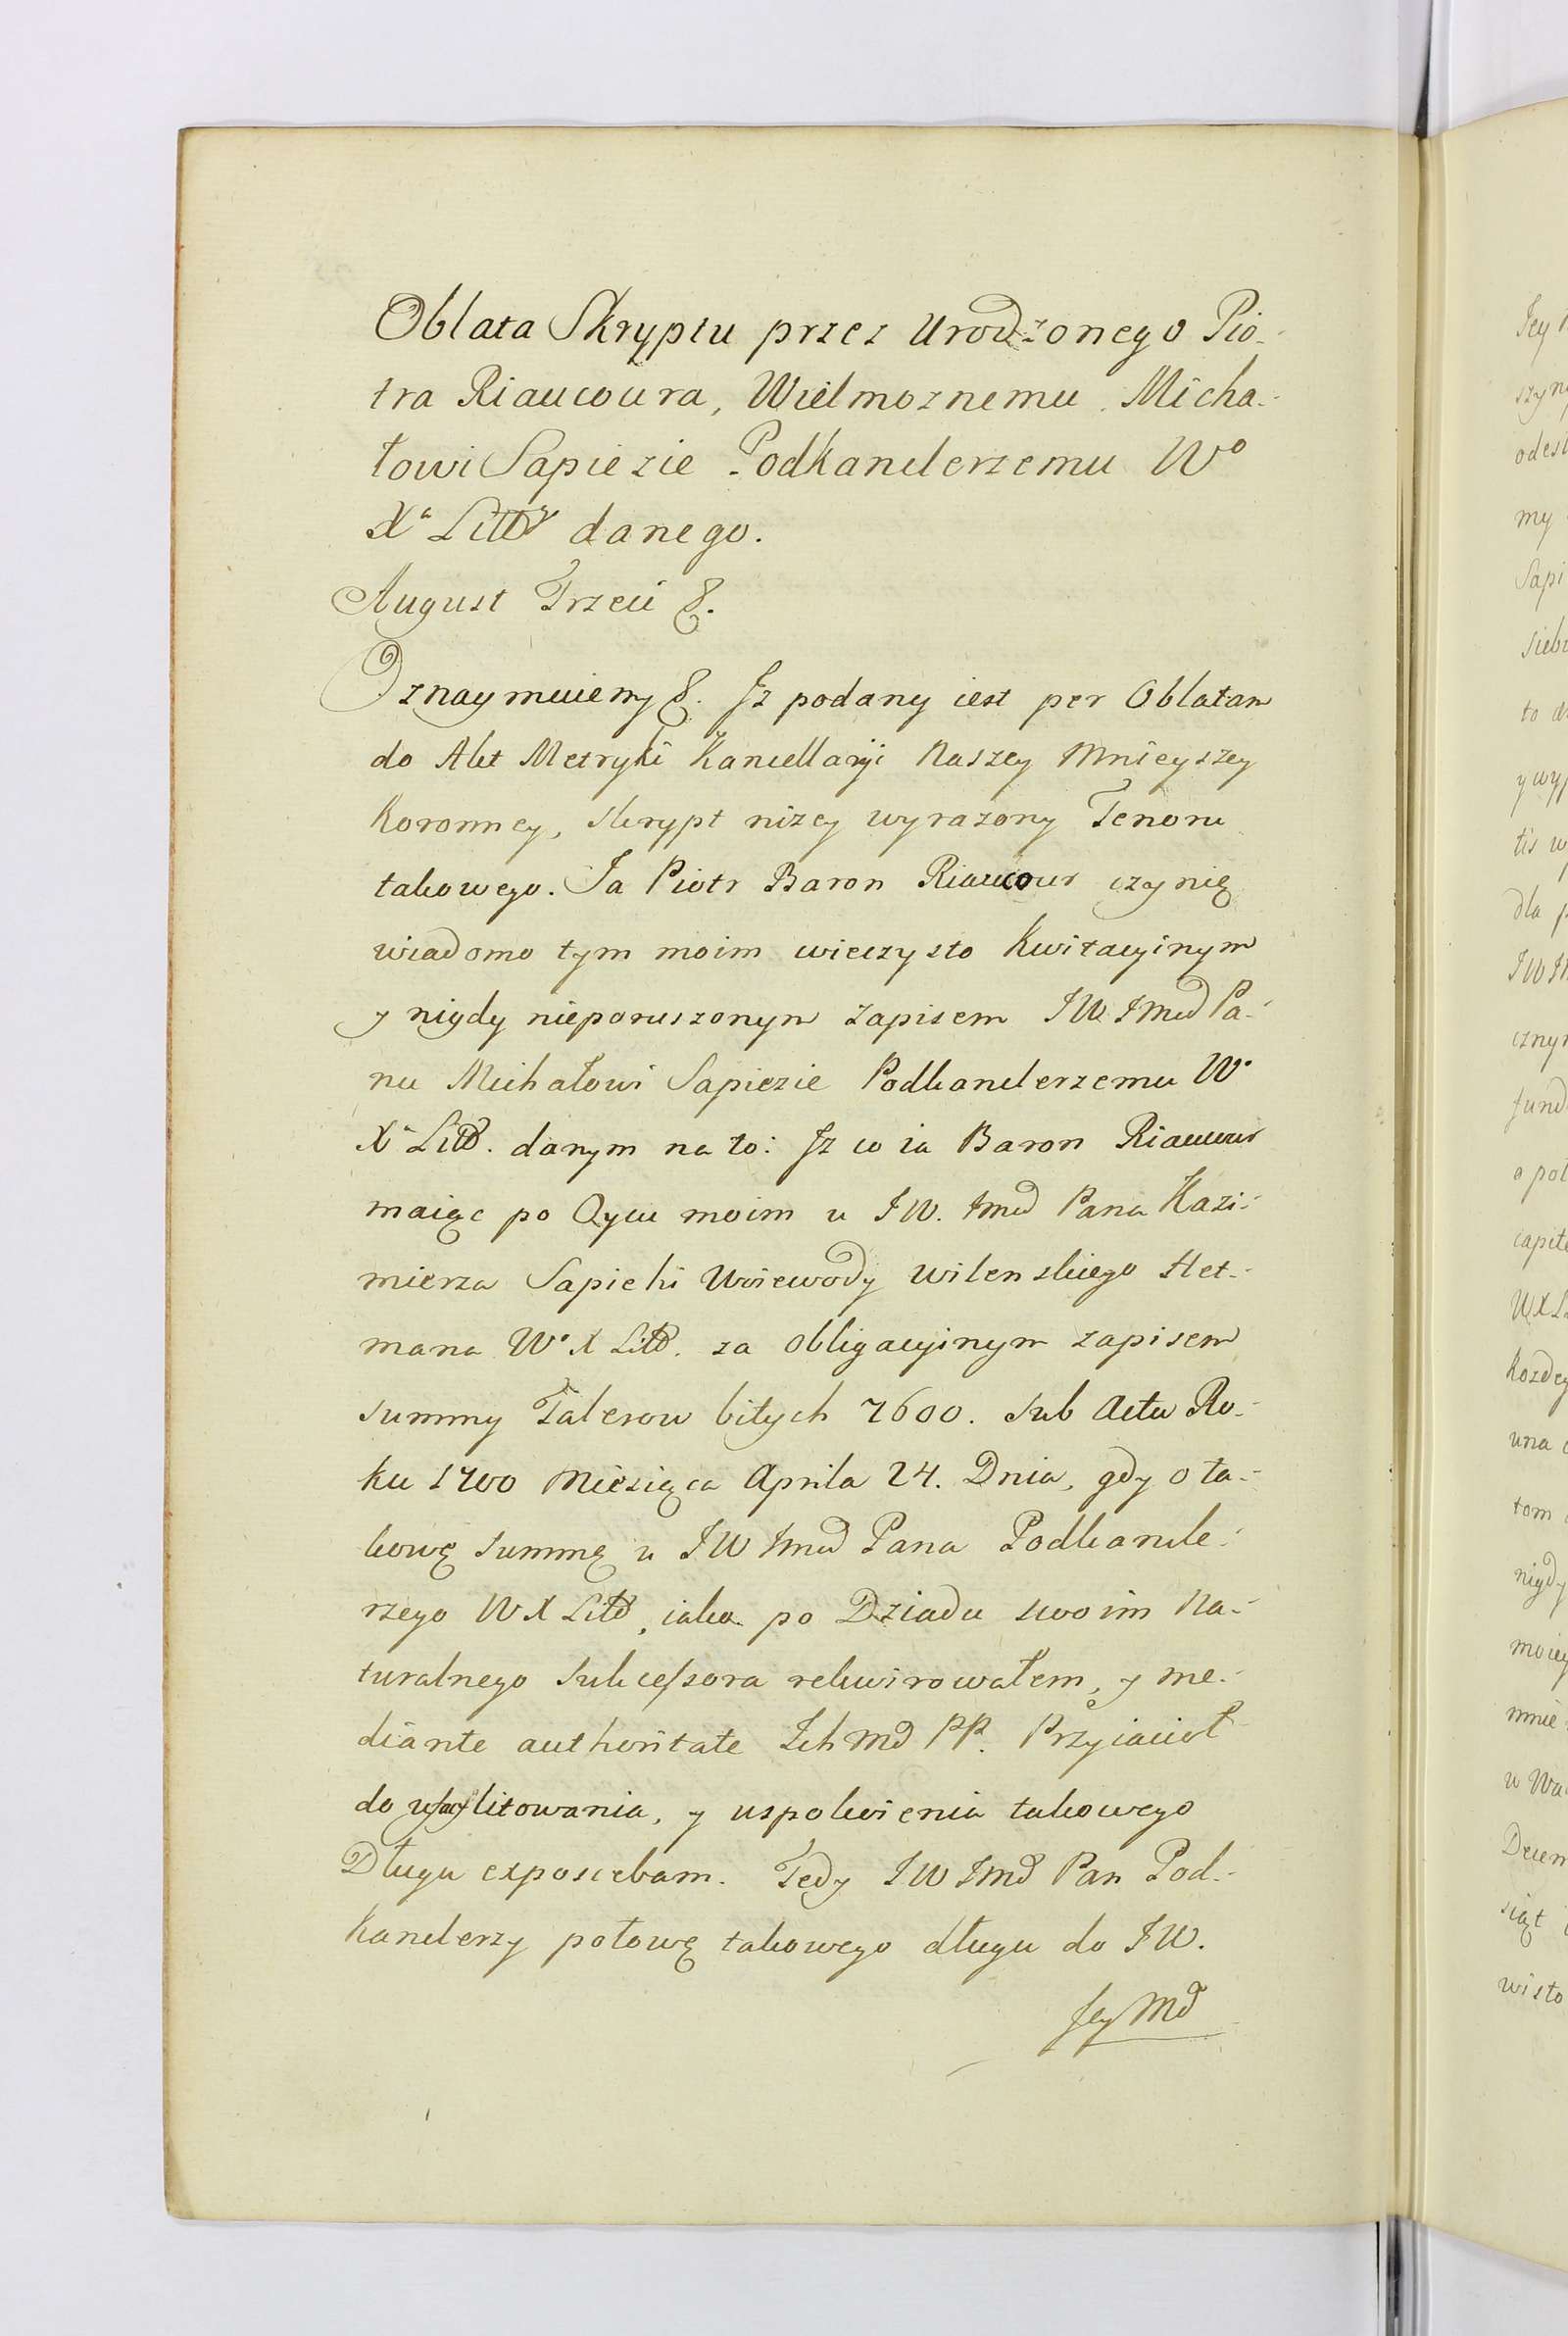 Oblata Skryptu przez Urodzonego Pio-
tra Riaucoura, Wielmoznemu Micha-
łowi Sapiezie Podkanclerzemu Wo
Xa Littgo danego.
August Trzeci &.
Oznaymuiemy &. Jz podany iest per Oblatam
do Akt Metryki Kancellaryi Naszey Mnieyszey
Koronney, skrypt nizey wyrazony Tenoru
takowego. Ja Piotr Baron Riaucour czynię
wiadomo tym moim wieczysto Kwitacyinym
y nigdy nieporuszonym zapisem JW Jmcd Pa-
nu Michałowi Sapiezie Podkanclerzemu Wo
Xa Littd. danym na to: Jz co ia Baron Riaucour
maiąc po Oycu moim u JW. Jmcd Pana Kazi-
mierza Sapiehi Woiewody wilenskiego Het-
mana Wo X Littd. za obligacyinym zapisem
summy Talerow bitych 7600. sub Actu Ro-
ku 1700 Miesiąca Aprila 24. Dnia, gdy o ta-
kowę summę u JW Jmcd Pana Podkancle-
rzego W X Littd, iako po Dziadu swoim Na-
turalnego Sukcessora rekwirowałem, y me-
diante authoritate Ich Md PP. Przyiacioł
do ufacylitowania, y uspokoienia takowego
Długu exposcebam. Tedy JW Jmd Pan Pod-
kanclerzy połowę takowego długu do JW.
Jey Md
Jey
odesł
my
Sapi
siebi
to
y wyp
tis w
dla p
czny
fund
a poł
capit
kozdey
una
tom
nigdy
moiey
mnie
w Wa
Decem
siąt
wisto